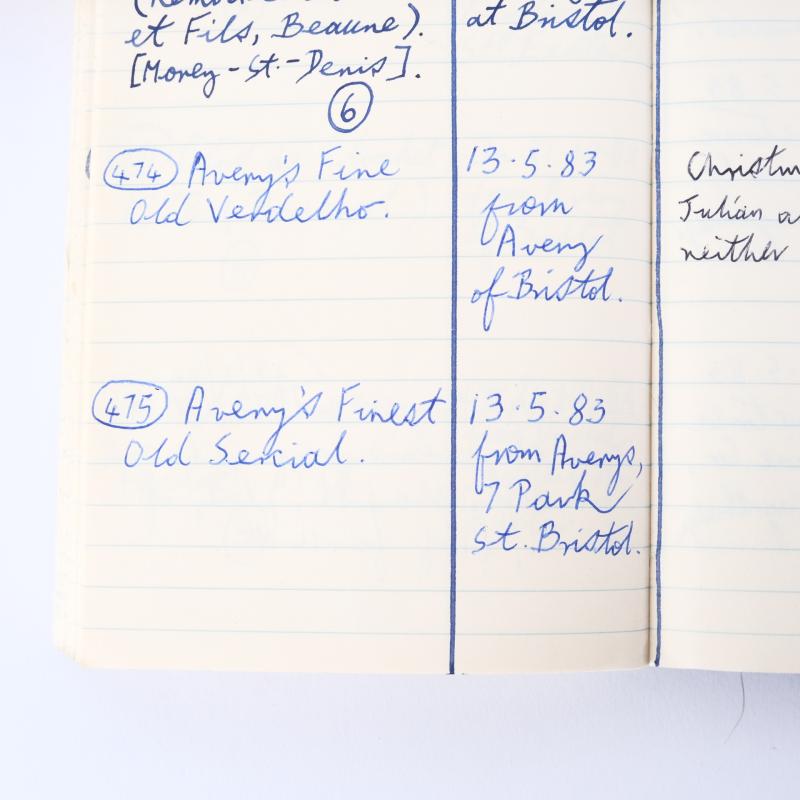 et Fils, Beaune).
[Morey-St.-Denis].
6
at Bristol.
474 Avery's Fine
Old Verdelho.
13.5.83
from
Avery
of Bristol.
Julian
neither
475 Avery's Finest
Old Sercial.
13.5.83
from Averys,
7 Park
St. Bristol.